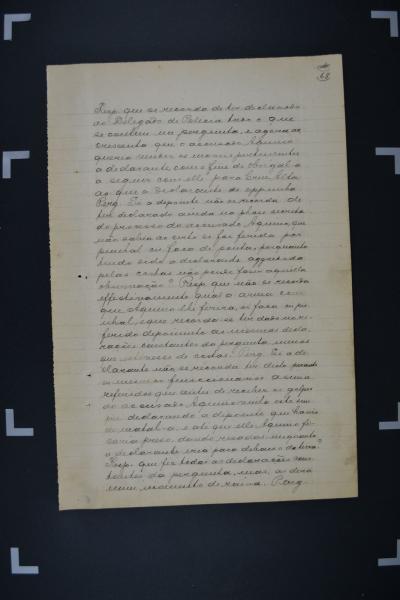 68
Resp. que se recorda de ter declarado
ao Delegado de Policia tudo o que
se contem na pergunta, e agora ac
crescenta que o accusado Aquino
queria
a declarante com o fim de obrigal-a
a seguir com elle para Cruz Alta
ao que a declarante se oppunha
Perg. Si a depoente não se recorda de
ter declarado ainda na phase secreta
do processo do accusado Aquino, que
não sabia ao certo si foi ferida por
punhal ou faca de ponta, porquanto
tendo sido a declarante aggredida
pelas costas não poude fazer aquella
observação? Resp. que não se recorda
effectivamente qual a arma com
que Aquino lhe ferira, si faca ou pu
nhal, e que recorda-se ter dado no re
ferido depoimento as mesmas decla
rações constantes da pergunta, menos
de costas. Perg. Si a de
clarante não se recorda ter dito perante
os mesmos funccionarios acima
referidos que antes de receber os golpes
do accusado Aquino este
declarando a depoente que havia
de matal-a, e até que elle Aquino fi
caria preso, donde
a declarante iria para debaixo da terra?
Resp. que fez todas as declarações cons
tantes da pergunta, mas, as dera
num momento de raiva. Perg.